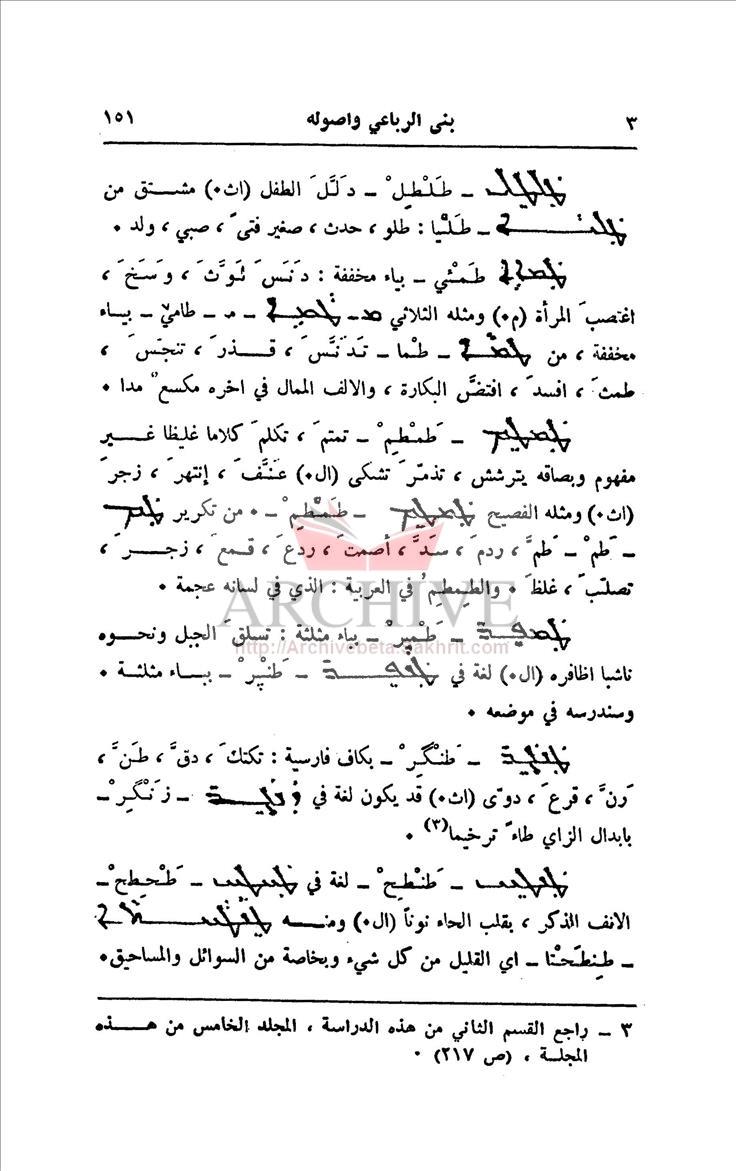 ٣ بنى الرباعي واصوله ١٥١
ـ طَلْطِلْ ـ دَلَّلَ الطفل (اث٠) مشتق من
ـ طَلْيا : طلو ، حدث ، صغير فتىً ، صبي ، ولد ٠
طَمْئي ـ بياء مخففة : دَنَسَ ثَوَّثَ ، وَسَخَ ،
اغتصبَ المرأة (م٠) ومثله الثلاثي ـ م ـ طاميْ ـ بياء
مخففة ، من ـ طْما ـ تَدَنَّسَ ، قَذَرَ ، تنجّسَ ،
طمثَ ، افسدَ ، افتضَّ البكارة ، والالف الممال في اخره مكسع مدا ٠
ـ طَمْطِمْ ـ تمتمَ ، تكلمَ كلاما غليظا غير
مفهوم وبصاقه يترشش ، تذمّرَ تشكى (ال٠) عَنَّفَ ، إنتهرَ ، زجرَ
(اث٠) ومثله الفصيح ـ طَمْطِمْ ـ ٠ من تكرير
ـ طَمْ ـ طَمَّ ، ردمَ ، سَدَّ ، أصمتَ ، ردعَ ، قمعَ ، زجرَ ،
تصلّبَ ، غلظَ ٠ والطِمطِمُ في العربية : الذي في لسانه عجمة ٠
ARCHIVE
ـ طَمْپِرْ ـ بباء مثلثة : تسلقَ الجبل ونحوه
http://Archivebeta.Sakhrit.com
ناشبا اظافره (ال٠) لغة في ـ طَنْپِرْ ـ ببـاء مثلثـة ٠
وسندرسه في موضعه ٠
ـ طَنْگِرْ ـ بكاف فارسية : تكتكَ ، دقَّ ، طَنَّ ،
رَنَّ ، قرعَ ، دوّى (اث٠) قد يكون لغة في ـ زَنْگِرْ ـ
بابدال الزاي طاءً ترخيما(٣) ٠
ـ طَنْطِحْ ـ لغة في ـ طَحْطِحْ ـ
الانف الذكر ، بقلب الحاء نوناً (ال٠) ومنـه
ـ طنطَحْتا ـ اي القليل من كل شيء وبخاصة من السوائل والمساحيق٠
٣ ـ راجع القسم الثاني من هذه الدراسة ، المجلد الخامس من هـذه
المجلـة ، (ص ٢١٧) ٠